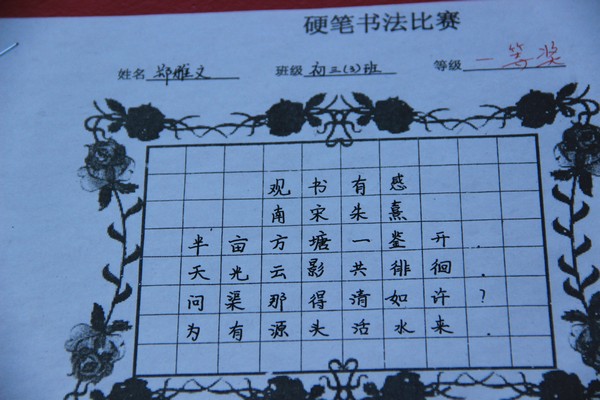 硬笔书法比赛
姓名 郑雅文 班级 初三(3)班 等级 一等奖
观书有感
南宋朱熹
半亩方塘一鉴开.
天光云影共徘徊.
问渠那得清如许?
为有源头活水来.